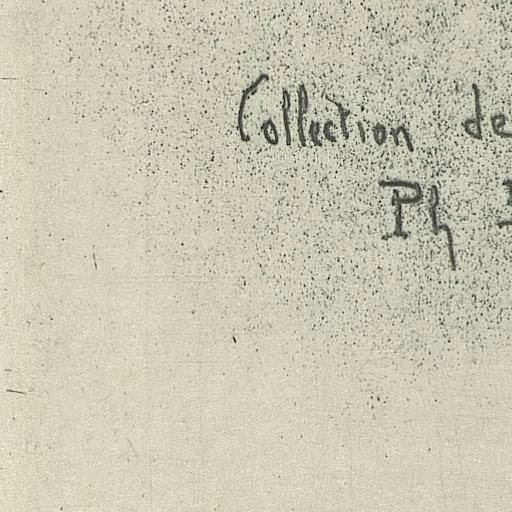 Collection de
Ph